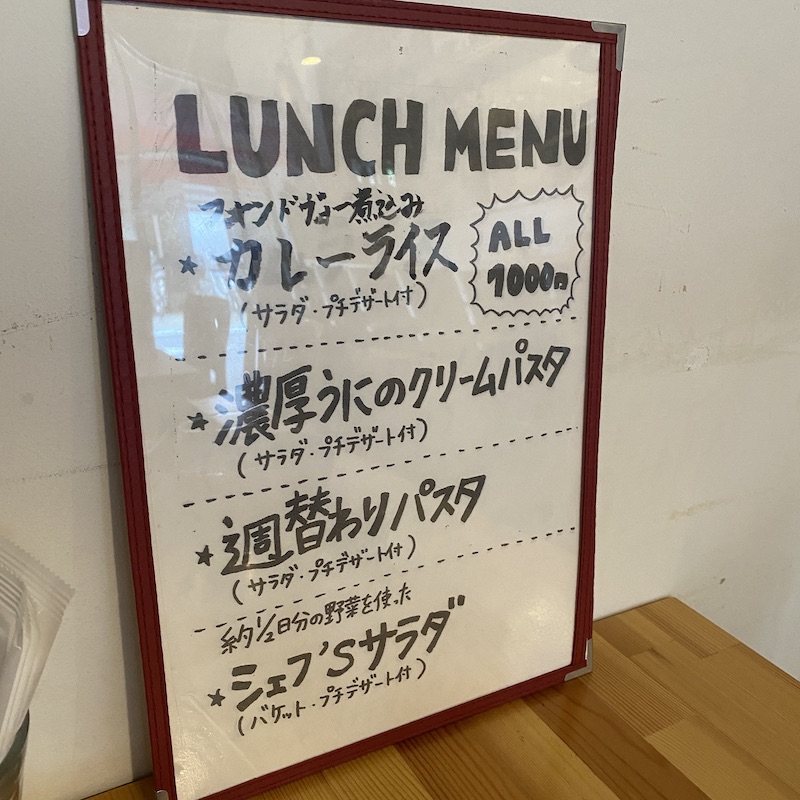 LUNCH MENU
フォンドヴォー煮込み
★ カレーライス
(サラダ・プチデザート付)
ALL
1000円
★ 濃厚うにのクリームパスタ
(サラダ・プチデザート付)
★ 週替わりパスタ
(サラダ・プチデザート付)
約1/2日分の野菜を使った
★ シェフ'Sサラダ
(バケット・プチデザート付)